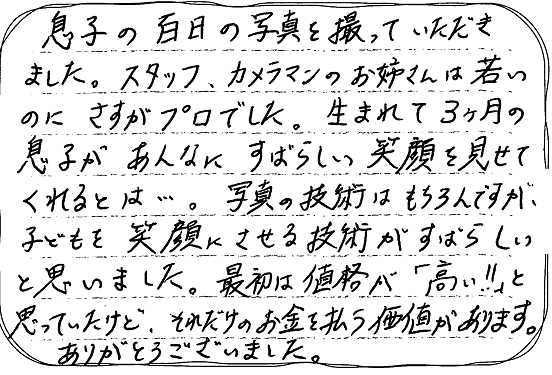 息子の百日の写真を撮っていただき
ました。スタッフ、カメラマンのお姉さんは若い
のに さすがプロでした。生まれて3ヶ月の
息子が あんなに すばらしい 笑顔を見せて
くれるとは…。写真の技術は もちろんですが、
子どもを 笑顔にさせる技術が すばらしい
と思いました。最初は値格が「高い!!」と
思っていたけど、それだけのお金を払う価値があります。
ありがとうございました。